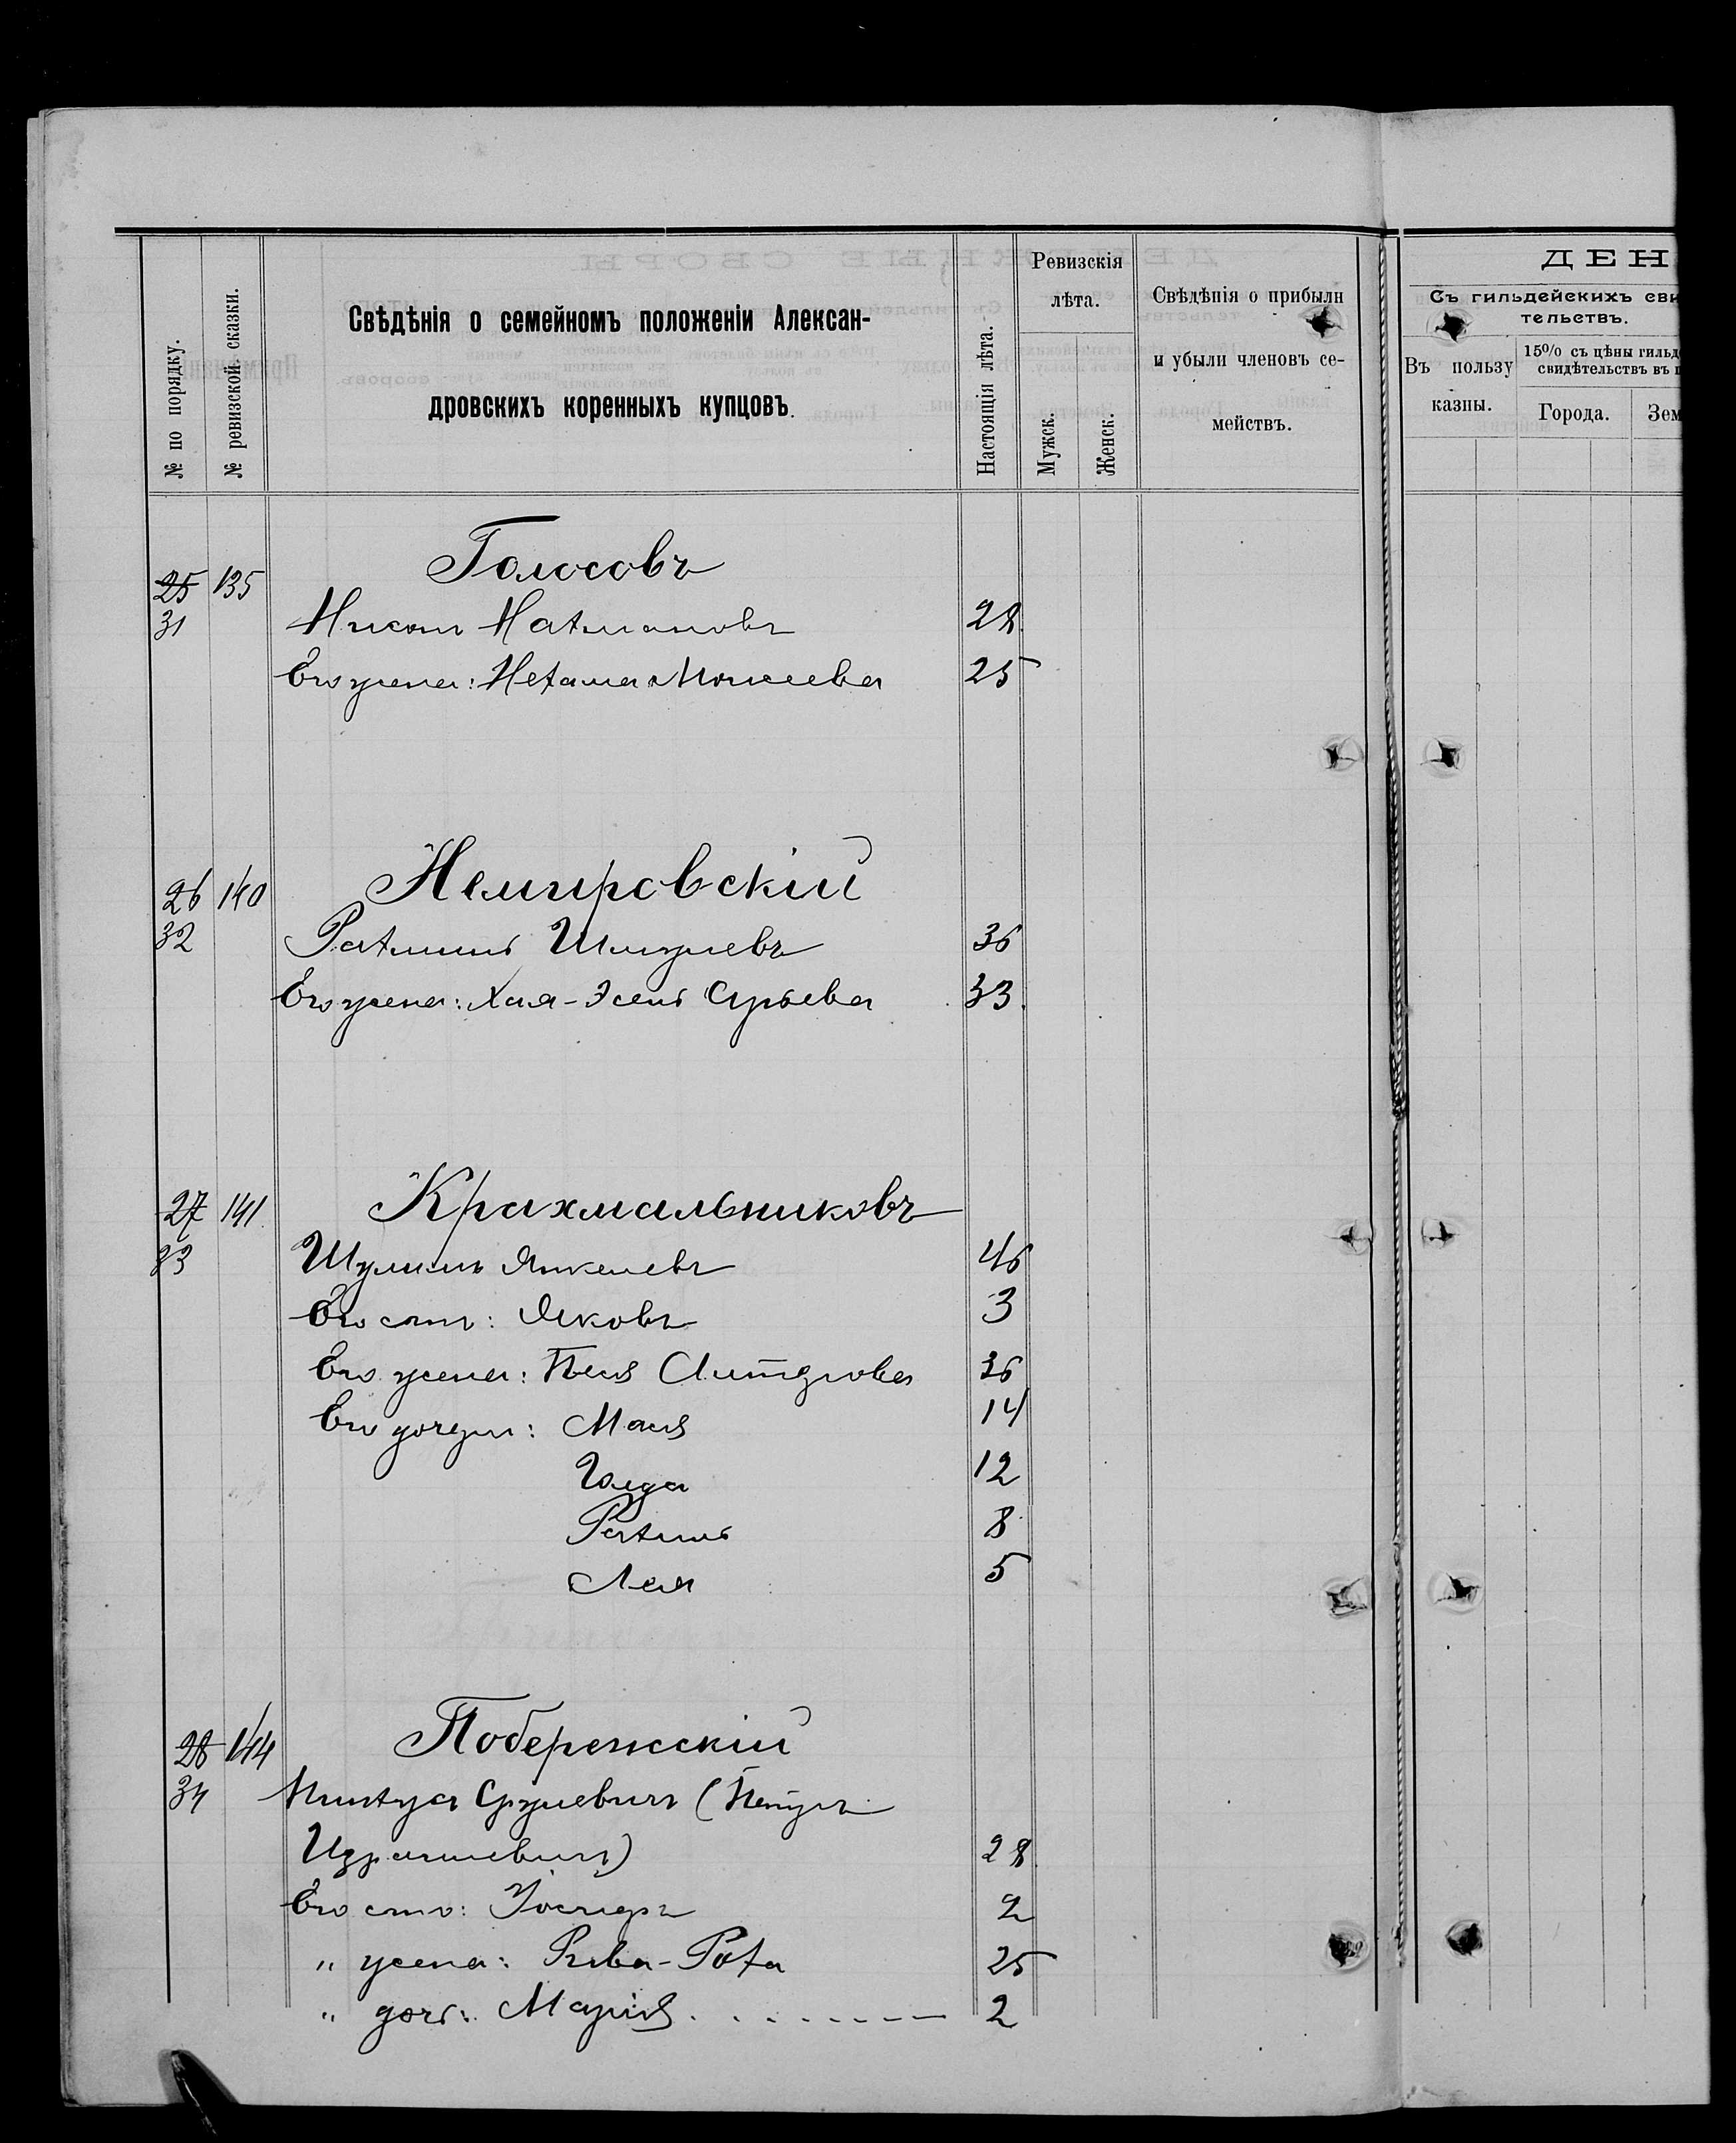 № по порядку.
№ ревизской сказки.
Свѣдѣнія о семейномъ положеніи Алексан-
дровскихъ коренныхъ купцовъ.
Настоящія лѣта.
Ревизскія
лѣта.
Мужск.
Женск.
Свѣдѣнія о прибыли
и убыли членовъ се-
мействъ.
ДЕН
Съ гильдейскихъ сви
тельствъ.
Въ пользу
казны.
15% съ цѣны гильд
свидѣтельствъ въ п
Города.
Зем
25 135 Голосовъ
31 Нахмановъ 28
Его жена: Нехама Моисеева 25
26 140 Немировскій
32 Рахмиль Шмулевъ 36
Его жена: Хая-Эсель Сруева 33
27 141 Крахмальниковъ
33 Шулимъ Янкелевъ 46
Его сынъ: Яковъ 3
Его жена: Песя 36
Его дочери: Мася 14
Голда 12
Рахиль 8
Лея 5
28 144 Побережскій
34 Пинхусъ Срулевичъ (Петръ
Израилевичъ) 28
Его сынъ: Іосифъ 2
" жена: Рива-Роха 25
" дочь: Марія 2